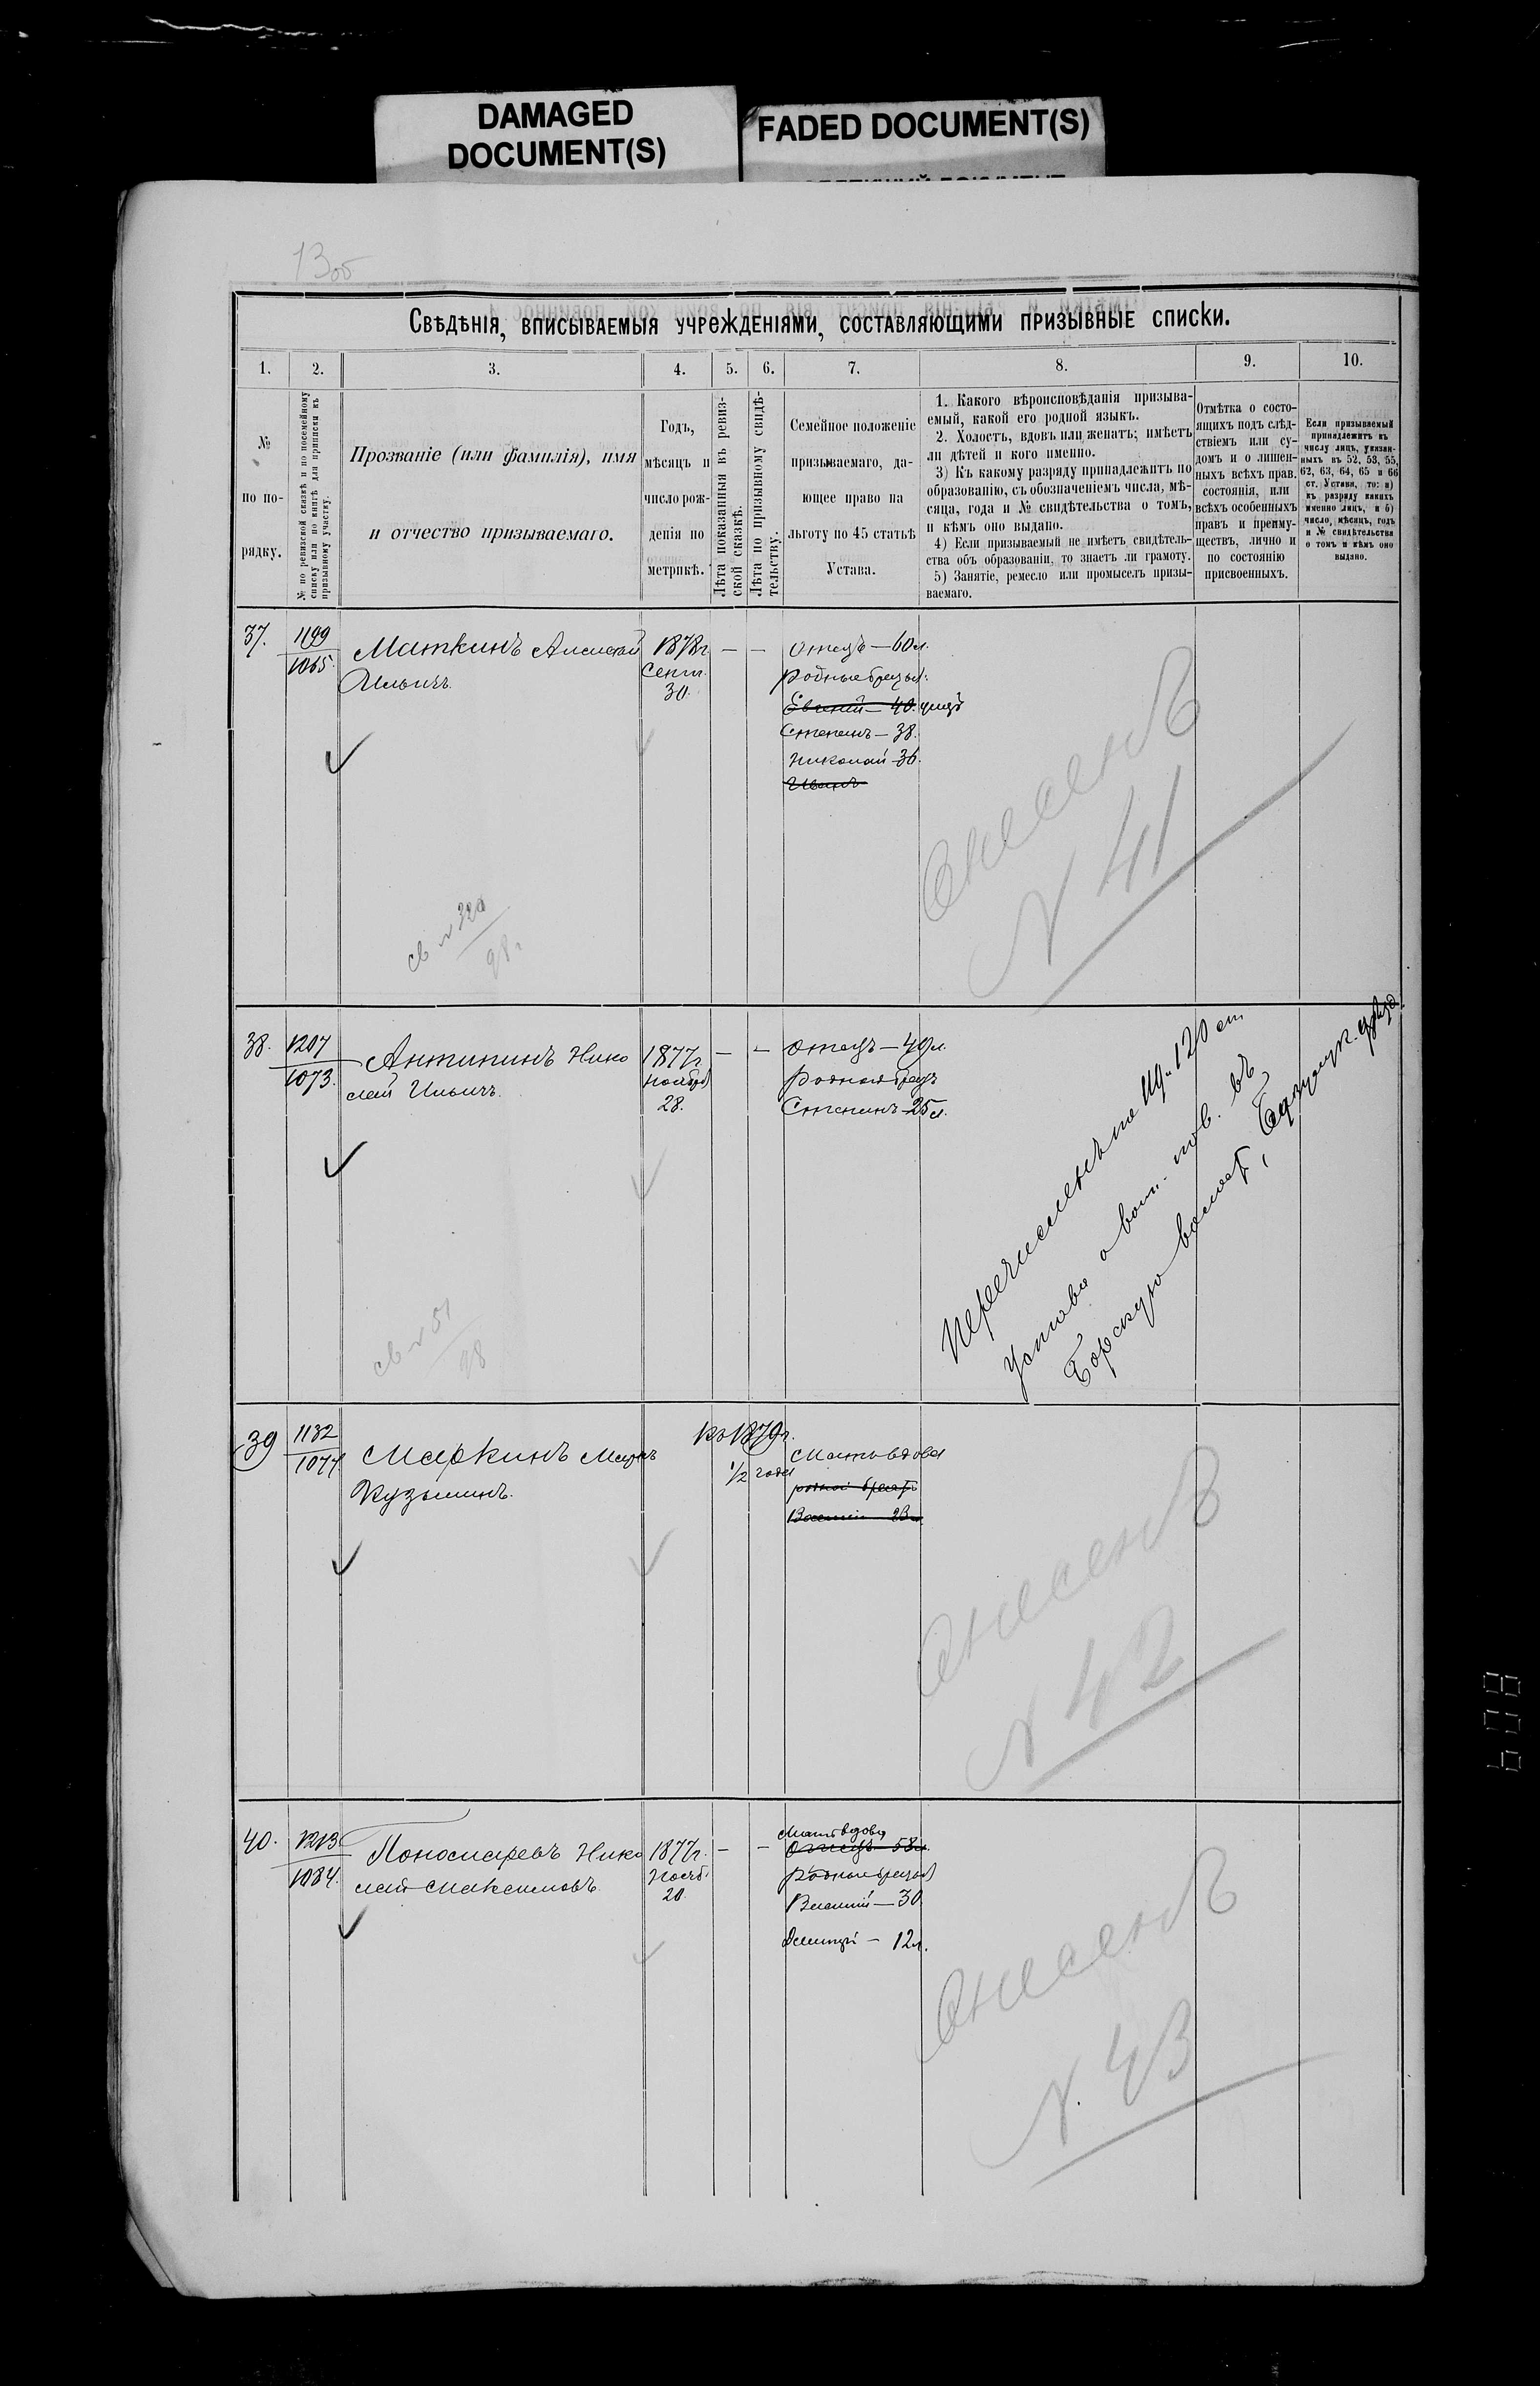 DAMAGED
DOCUMENT(S)
FADED DOCUMENT(S)
13об
Свѣдѣнія, вписываемыя учрежденіями, составляющими призывные списки.
1.
2.
3.
4.
5.
6.
7.
8.
9.
10.
№
по по-
рядку.
№ по ревизской сказкѣ и по посемейному
списку или по книгѣ для приписки къ
призывному участку.
Прозваніе (или фамилія), имя
и отчество призываемаго.
Годъ,
мѣсяцъ и
число рож-
денія по
метрикѣ.
Лѣта показанныя въ ревиз-
ской сказкѣ.
Лѣта по призывному свидѣ-
тельству.
Семейное положеніе
призываемаго, да-
ющее право на
льготу по 45 статьѣ
Устава.
1. Какого вѣроисповѣданія призыва-
емый, какой его родной языкъ.
2. Холостъ, вдовъ или женатъ; имѣетъ
ли дѣтей и кого именно.
3) Къ какому разряду принадлежитъ по
образованію, съ обозначеніемъ числа, мѣ-
сяца, года и № свидѣтельства о томъ,
и кѣмъ оно выдано.
4) Если призываемый не имѣетъ свидѣтель-
ства объ образованіи, то знаетъ ли грамоту.
5) Занятіе, ремесло или промыселъ призы-
ваемаго.
Отмѣтка о состо-
ящихъ подъ слѣд-
ствіемъ или су-
домъ и о лишен-
ныхъ всѣхъ прав.
состоянія, или
всѣхъ особенныхъ
правъ и преиму-
ществъ, лично и
по состоянію
присвоенныхъ.
Если призываемый
принадлежитъ къ
числу лицъ, указан-
ныхъ въ 52, 53, 55,
62, 63, 64, 65 и 66
ст. Устава, то: а)
къ разряду какихъ
именно лицъ, и б)
число, мѣсяцъ, годъ
и № свидѣтельства
о томъ и кѣмъ оно
выдано.
37.
1199
1065.
Маткинъ Алексѣй
Ильичъ.
1878г
Сент.
30.
—
—
Отецъ — 60 л.
родные братья:
Евгеній — 40.
Степанъ — 38.
Николай 36.
Иванъ
Внесенъ
N 41
св N 320
98г
38.
1207
1073.
Антипинъ Нико
лай Ильичъ.
1877г.
Ноября
28.
—
—
Отецъ — 49 л.
Родной братъ
Степанъ 25 л.
Перечисленъ по 119 и 120 ст.
Устава о воин. пов. въ
Борскую волость, Бузулук. уѣзда.
св N 51
98
39
1132
1077.
Маркинъ Маркъ
Кузьминъ.
Къ 1879г.
1/2 года
Мать вдова
родной братъ
Василій 23
Внесенъ
N 42
40.
1213.
1084.
Пономаревъ Нико
лай Максимовъ.
1877г.
Нояб.
20.
—
—
Мать вдова
Отецъ 58 л.
Родные братья
Василій — 30
Дмитрій — 12 л.
Внесенъ
N. 43
609